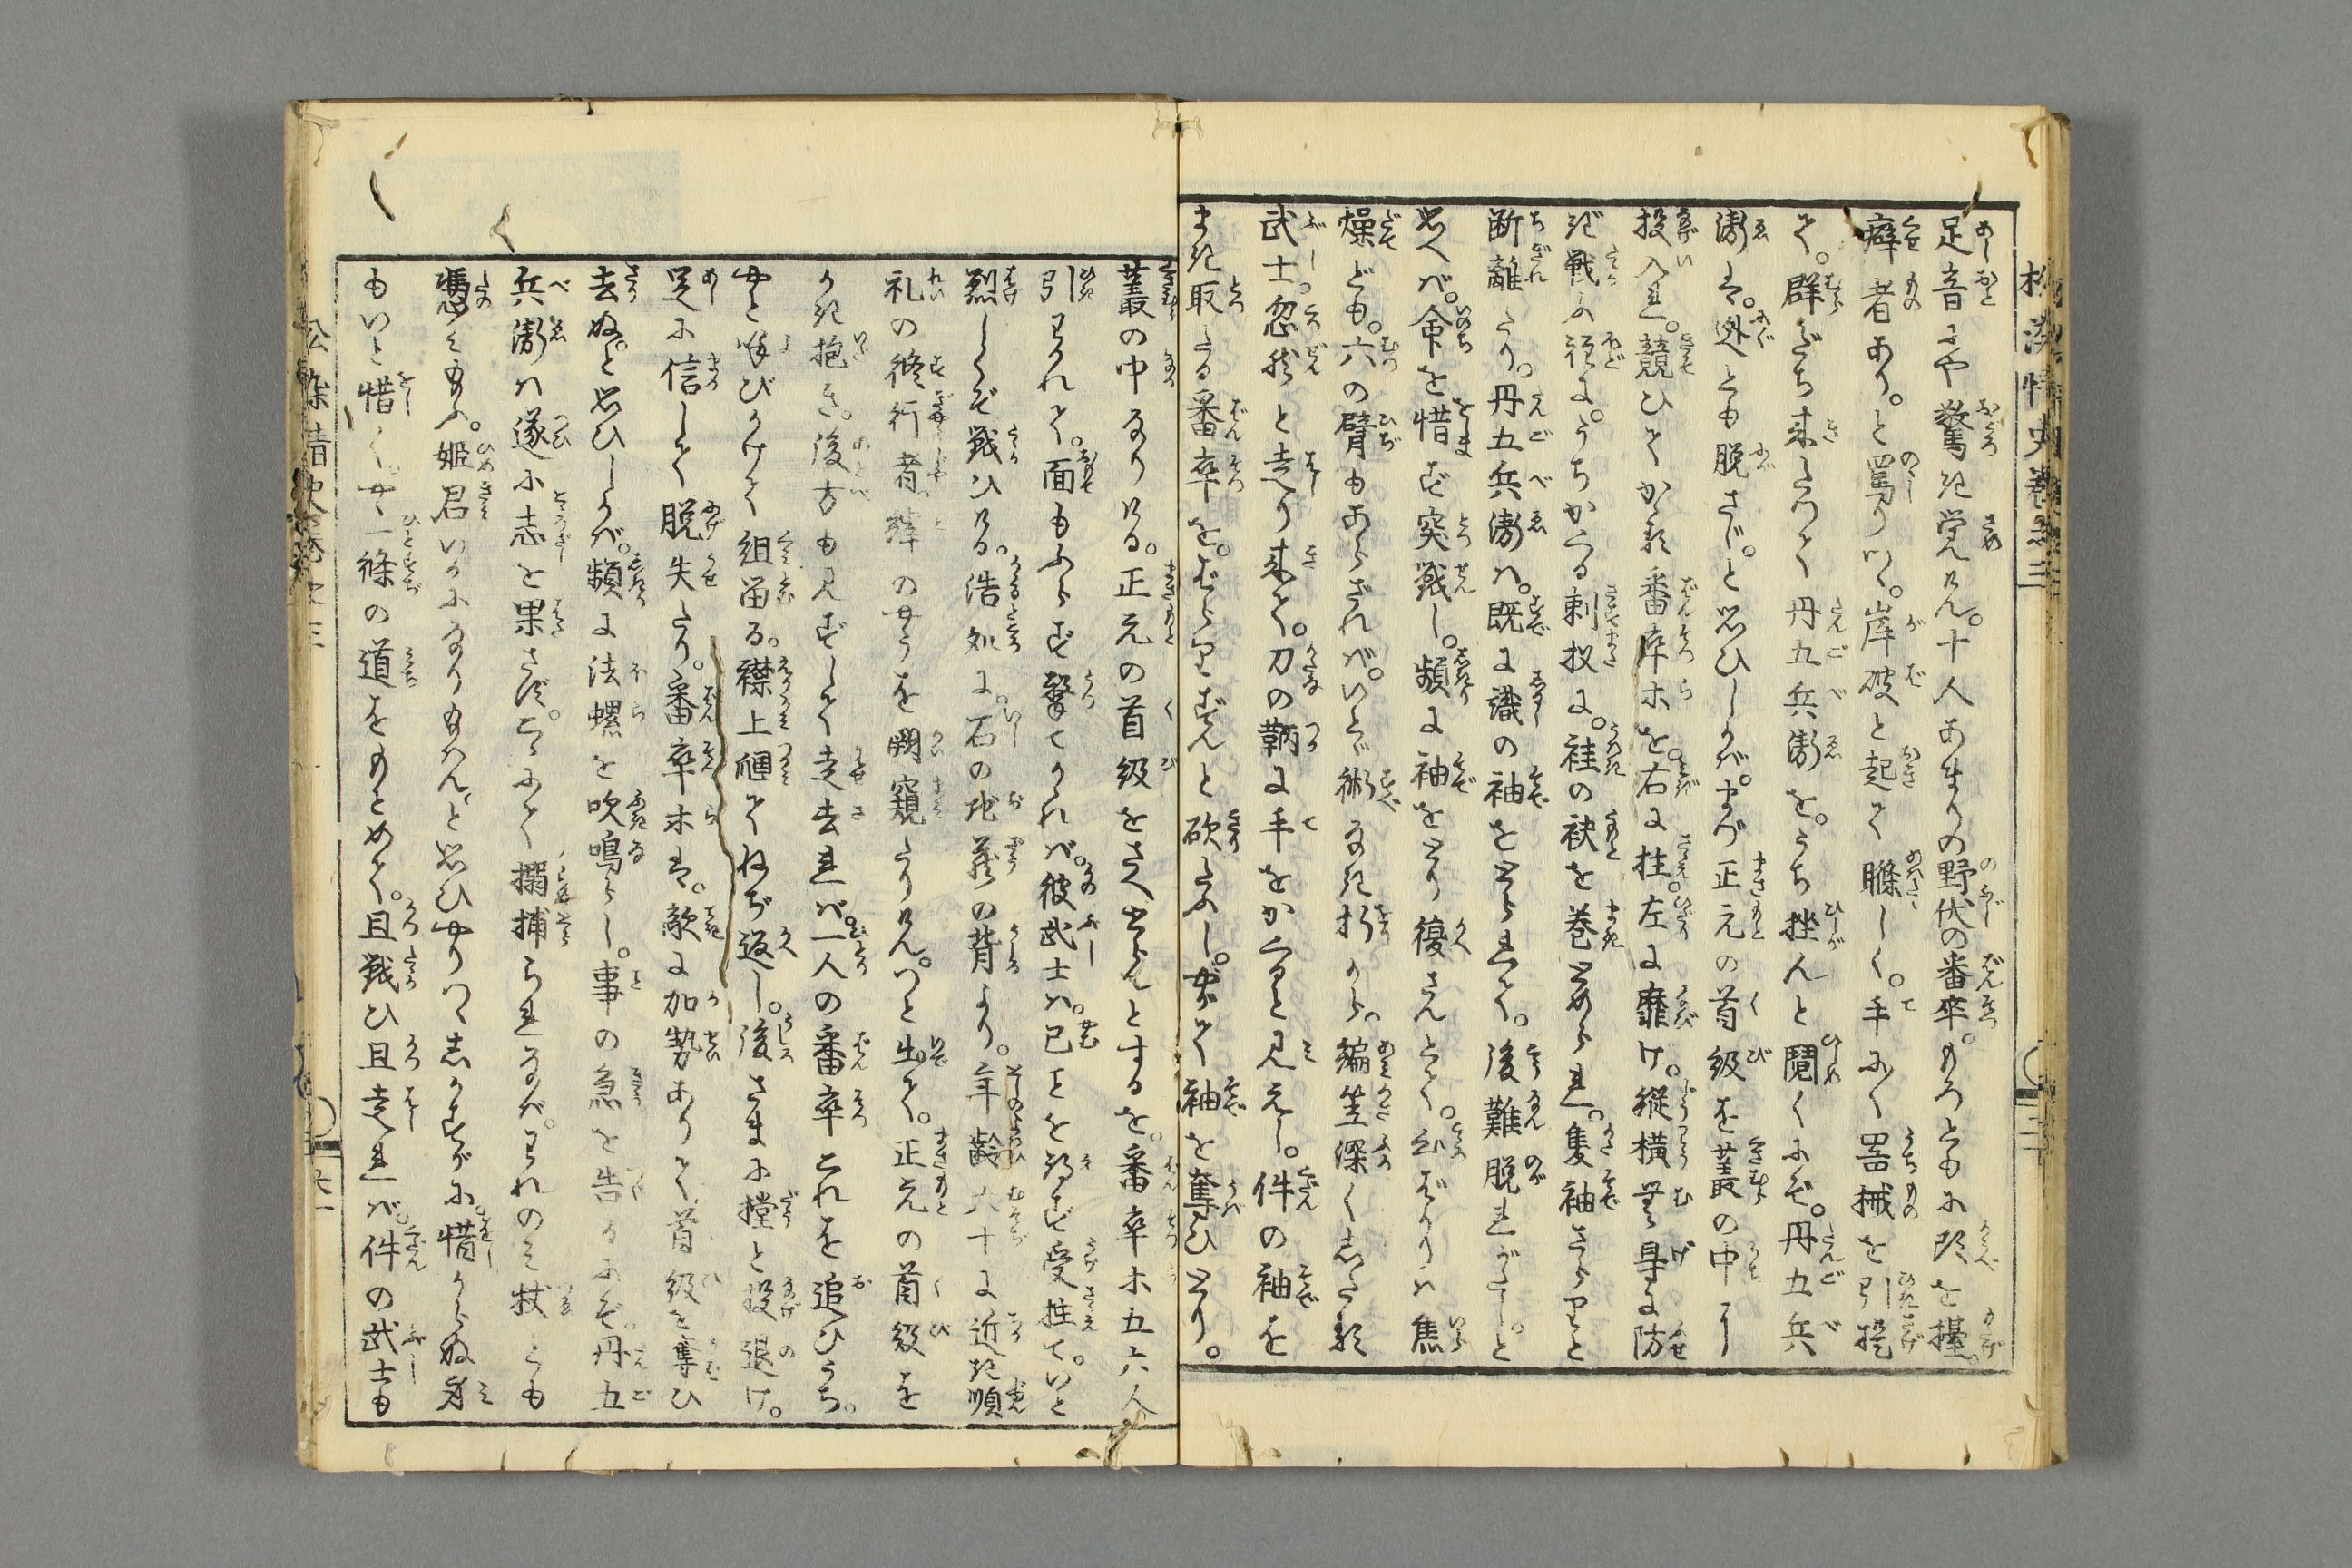 足音にや驚き覚けん。十人あまりの野伏の番卒。もろともに頭を擡
癖者あり。と罵りつゝ。岸破と起て睜しく。手に〳〵器械を引提
て。群だち来たつて丹五兵衛を。うち挫んと鬩くにぞ。丹五兵
衛は。迯とも脱さじ。と思ひしかば。まづ正元の首級を叢の中に
投入れ。競ひてかゝる番卒ホを。右に拄左に靡け。縦横無身に防
ぎ戦ふ程に。うちかくる刺扠に。袿の袂を巻とめられ。隻袖さらりと
断離たり。丹五兵衛は。既に識の袖をとられて。後難脱れがたし。と
思へば。命を惜まず突戦し。頻に袖をとり復さんとて。心ばかりは焦
燥ども。六の臂もあらざれば。いとゞ術なき折から。編笠深くしたる
武士。忽然と走り来て。刀の鞆に手をかくると見えし。件の袖を
まき取たる番卒を。ばらりずんと砍たふし。やがて袖を奪ひとり。
叢の中なりける。正元の首級をさへとらんとするを。番卒ホ五六人
引わかれて。面もふらず撃てかかれば。彼武士は。已ことを得ず受拄て。いと
烈しくぞ戦ひける。浩処に。石の地蔵の背より。年齢六十に近き順
礼の修行者。縡のやうを闚窺たりけん。つと出て。正元の首級を
かき抱き。後方も見ずして走去れば。一人の番卒これを追ひうち。
やと呼びかけて組留る。襟上𢌞てねぢ返し。後さまに撑と投退け。
足に信して脱失たり。番卒ホは。敵に加勢ありて首級を奪ひ
去ぬ。と思ひしかば。頻に法螺を吹鳴らし。事の急を告るにぞ。丹五
兵衛は遂に志を果さず。こゝにて搦捕られなば。われのみ杖とも
憑み給ふ。姫君いかになり給はん。と思ひやりつゝしかすがに。惜からぬ身
もいと惜く。一條の道をもとめて。且戦ひ且走れば。件の武士も